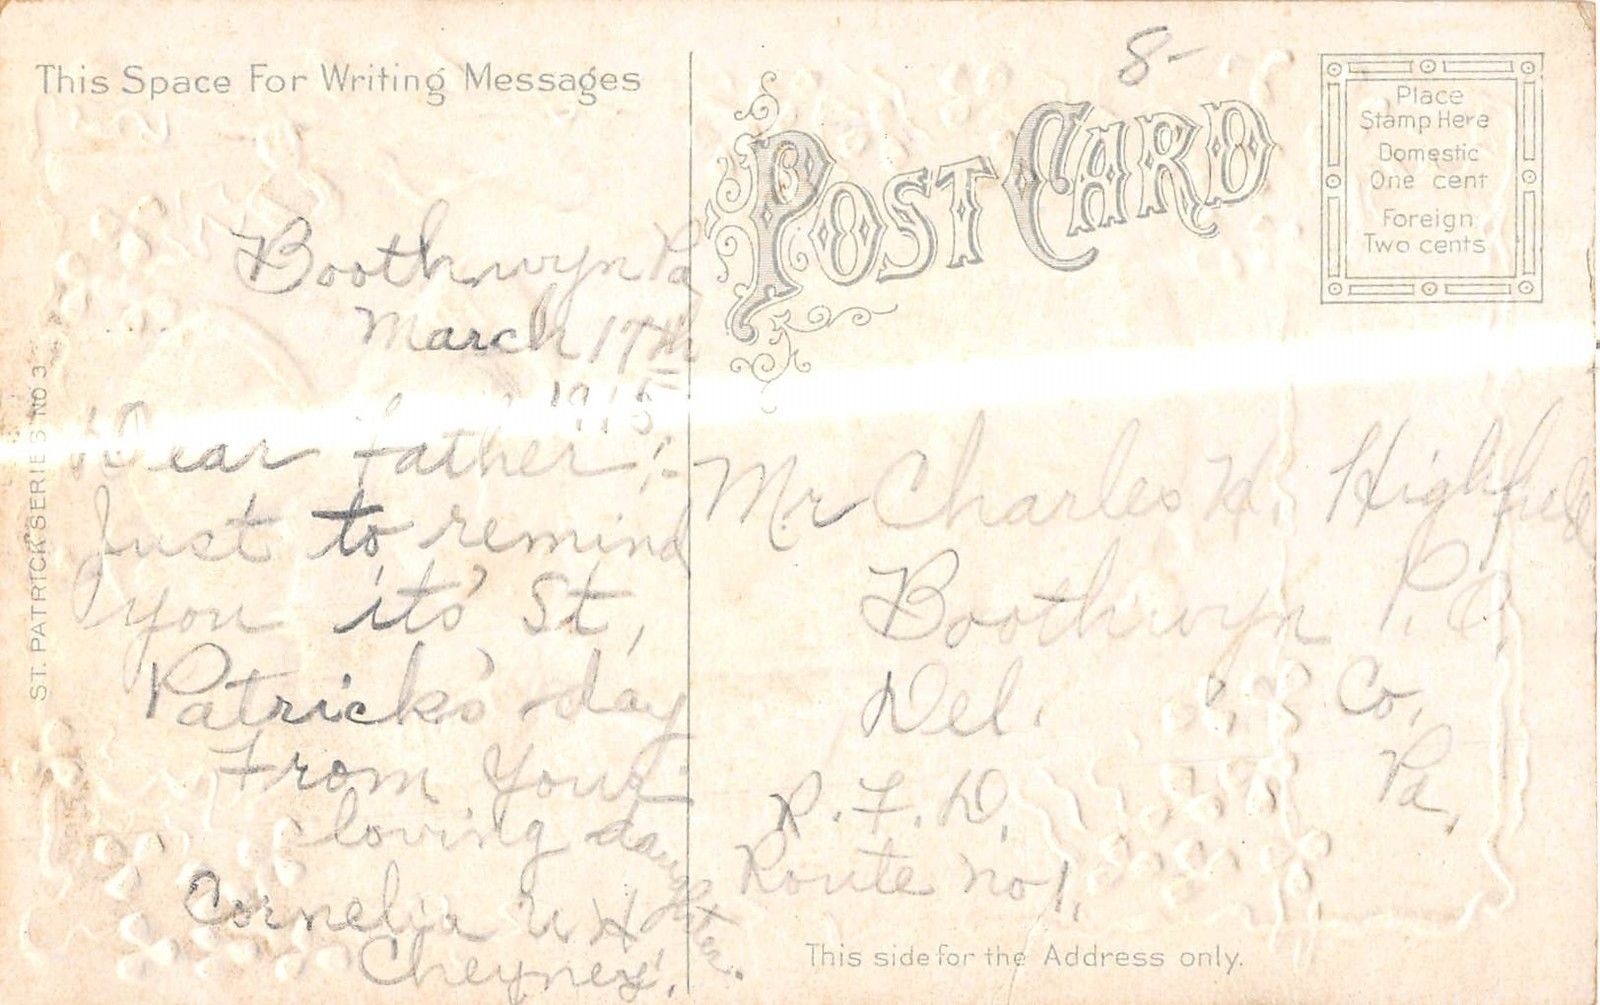 This Space For Writing Messages
Boothwyn Pa
March 17th
1915
Dear father;-
Just to remind
you it's St,
Patrick's day
From Your
loving daughter.
Cornelia H
Cheyney.
ST. PATRICK SERIES NO 3
8-
POST CARD
Place
Stamp Here
Domestic
One cent
Foreign
Two cents
Mr Charles H. Highfield
Boothwyn P.O.
Del. Co,
Pa,
R.F.D.
Route no 1,
This side for the Address only.